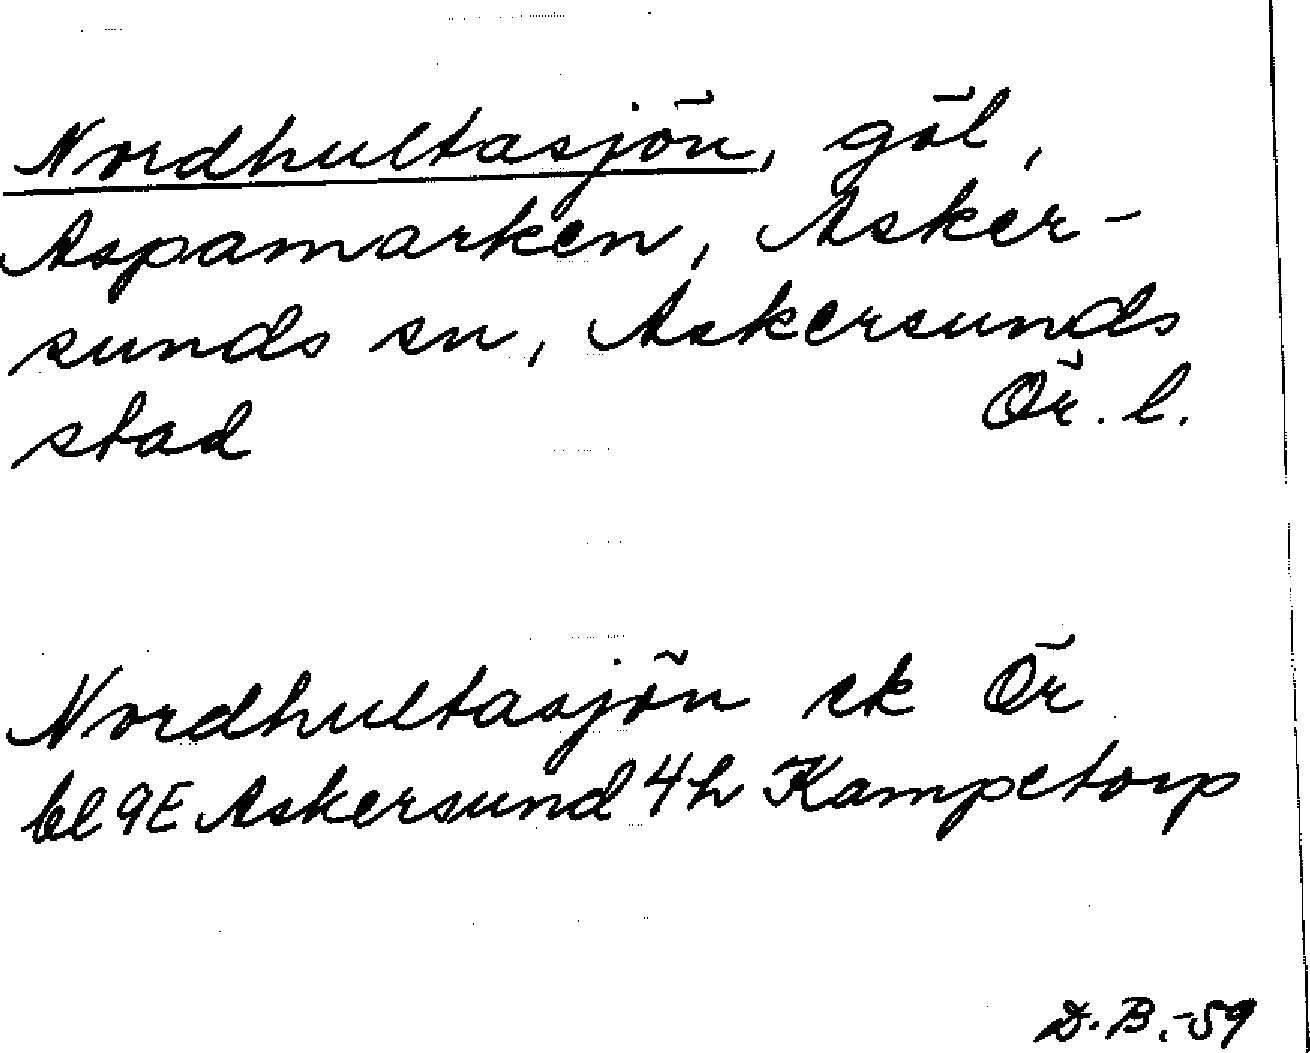 Nordhultasjön, göl,
Aspamarken, Asker-
sunds sn, Askersunds
stad Ör. l.
Nordhultasjön ek Ör
bl 9E Askersund 4h Kampetorp
D.B.-59